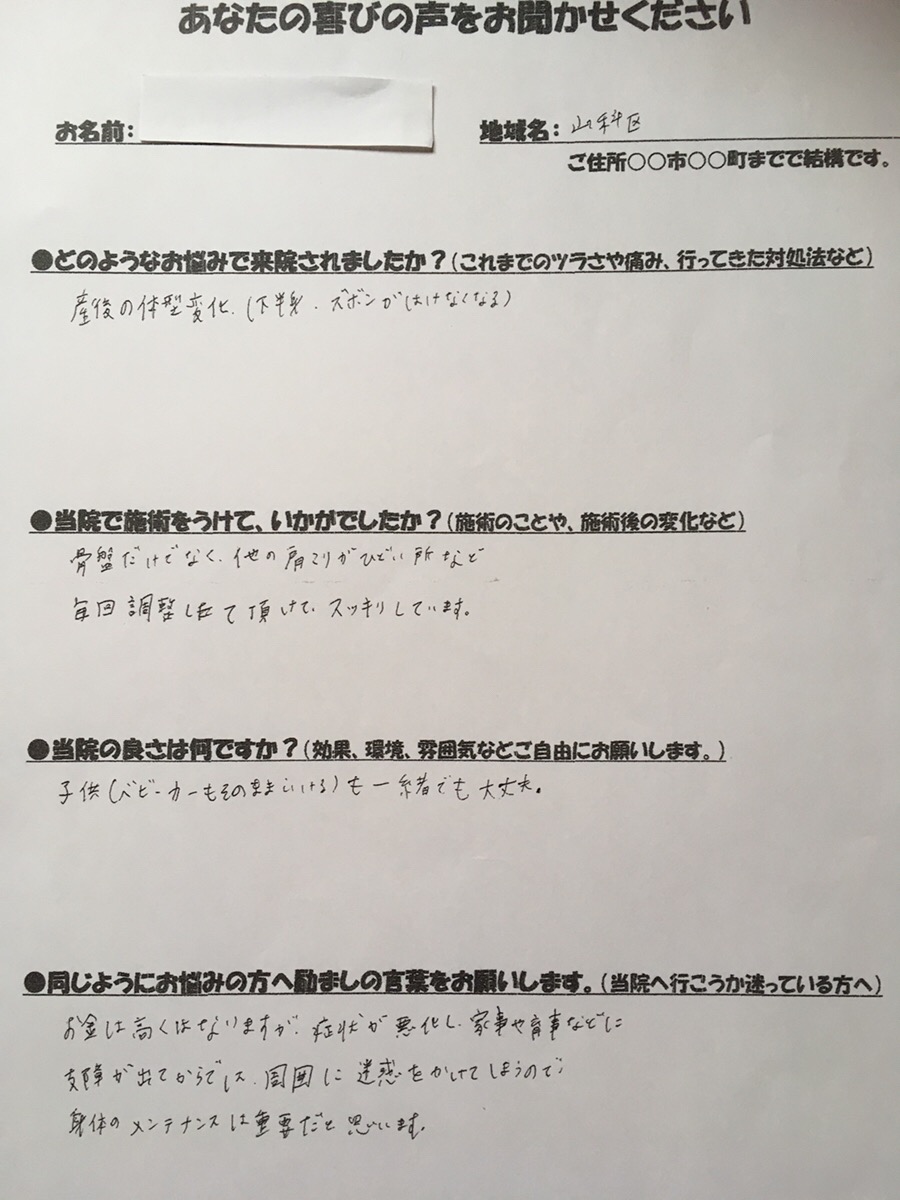 あなたの喜びの声をお聞かせください
お名前:
地域名: 山科区
ご住所○○市○○町までで結構です。
●どのようなお悩みで来院されましたか?(これまでのツラさや痛み、行ってきた対処法など)
産後の体型変化、(下半身、ズボンがはけなくなる)
●当院で施術をうけて、いかがでしたか?(施術のことや、施術後の変化など)
骨盤だけでなく、他の肩こりがひどい所など
毎回調整して頂けて、スッキリしています。
●当院の良さは何ですか?(効果、環境、雰囲気などご自由にお願いします。)
子供(ベビーカーもそのままいける)も一緒でも大丈夫。
●同じようにお悩みの方へ励ましの言葉をお願いします。(当院へ行こうか迷っている方へ)
お金は高くはなりますが、症状が悪化し、家事や育事などに
支障が出てからでは、周囲に迷惑をかけてしまうので
身体のメンテナンスは重要だと思います。